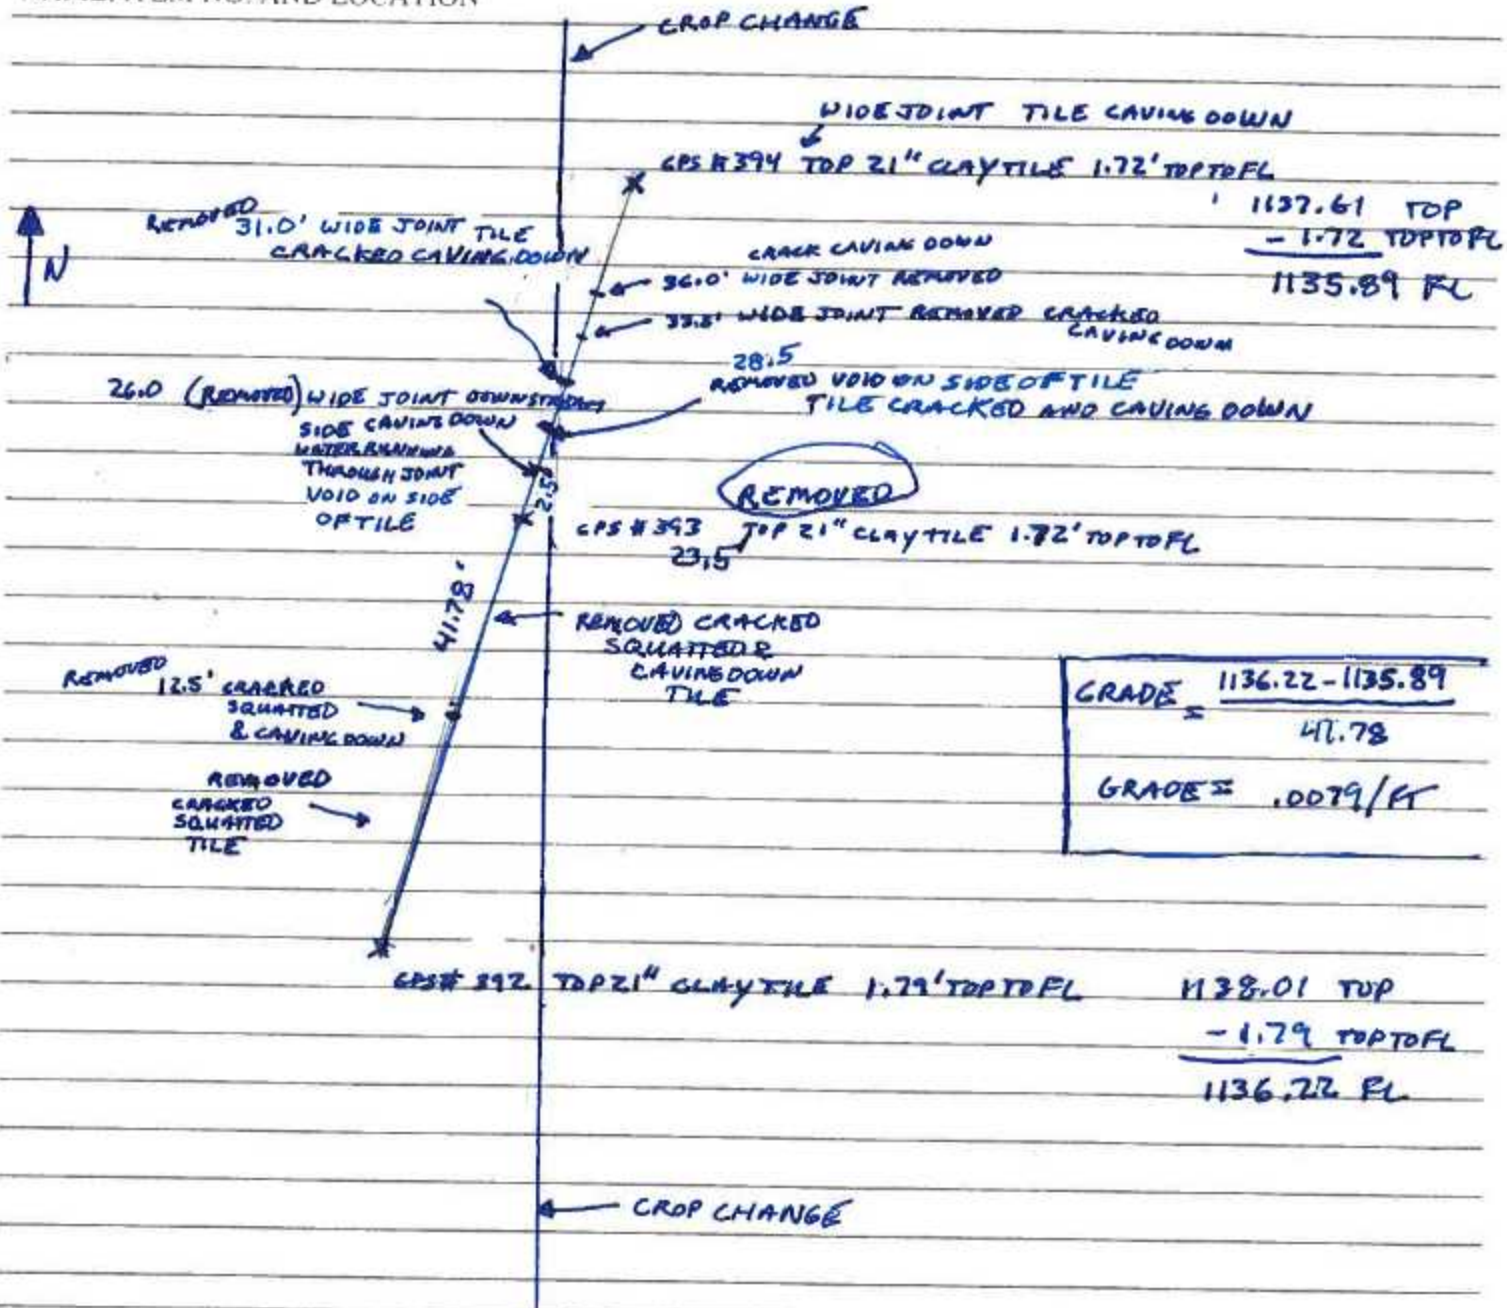 AND LOCATION
CROP CHANGE
WIDE JOINT TILE CAVING DOWN
GPS #394 TOP 21" CLAY TILE 1.72' TOP TO FL
1137.61 TOP
- 1.72 TOP TO FL
1135.89 FL
N
REMOVED
31.0' WIDE JOINT TILE
CRACKED CAVING DOWN
CRACK CAVING DOWN
36.0' WIDE JOINT REMOVED
WIDE JOINT REMOVED CRACKED
CAVING DOWN
28.5
REMOVED VOID ON SIDE OF TILE
TILE CRACKED AND CAVING DOWN
26.0 (REMOVED) WIDE JOINT DOWNSTREAM
SIDE CAVING DOWN
WATER RUNNING
THROUGH JOINT
VOID ON SIDE
OF TILE
2.5'
REMOVED
GPS #393 TOP 21" CLAY TILE 1.72' TOP TO FL
23.5
41.78'
REMOVED CRACKED
SQUATTED &
CAVING DOWN
TILE
REMOVED
12.5' CRACKED
SQUATTED
& CAVING DOWN
REMOVED
CRACKED
SQUATTED
TILE
GRADE = 1136.22-1135.89
41.78
GRADE = .0079/FT
GPS# 392 TOP 21" CLAY TILE 1.79' TOP TO FL
1138.01 TOP
- 1.79 TOP TO FL
1136.22 FL
CROP CHANGE